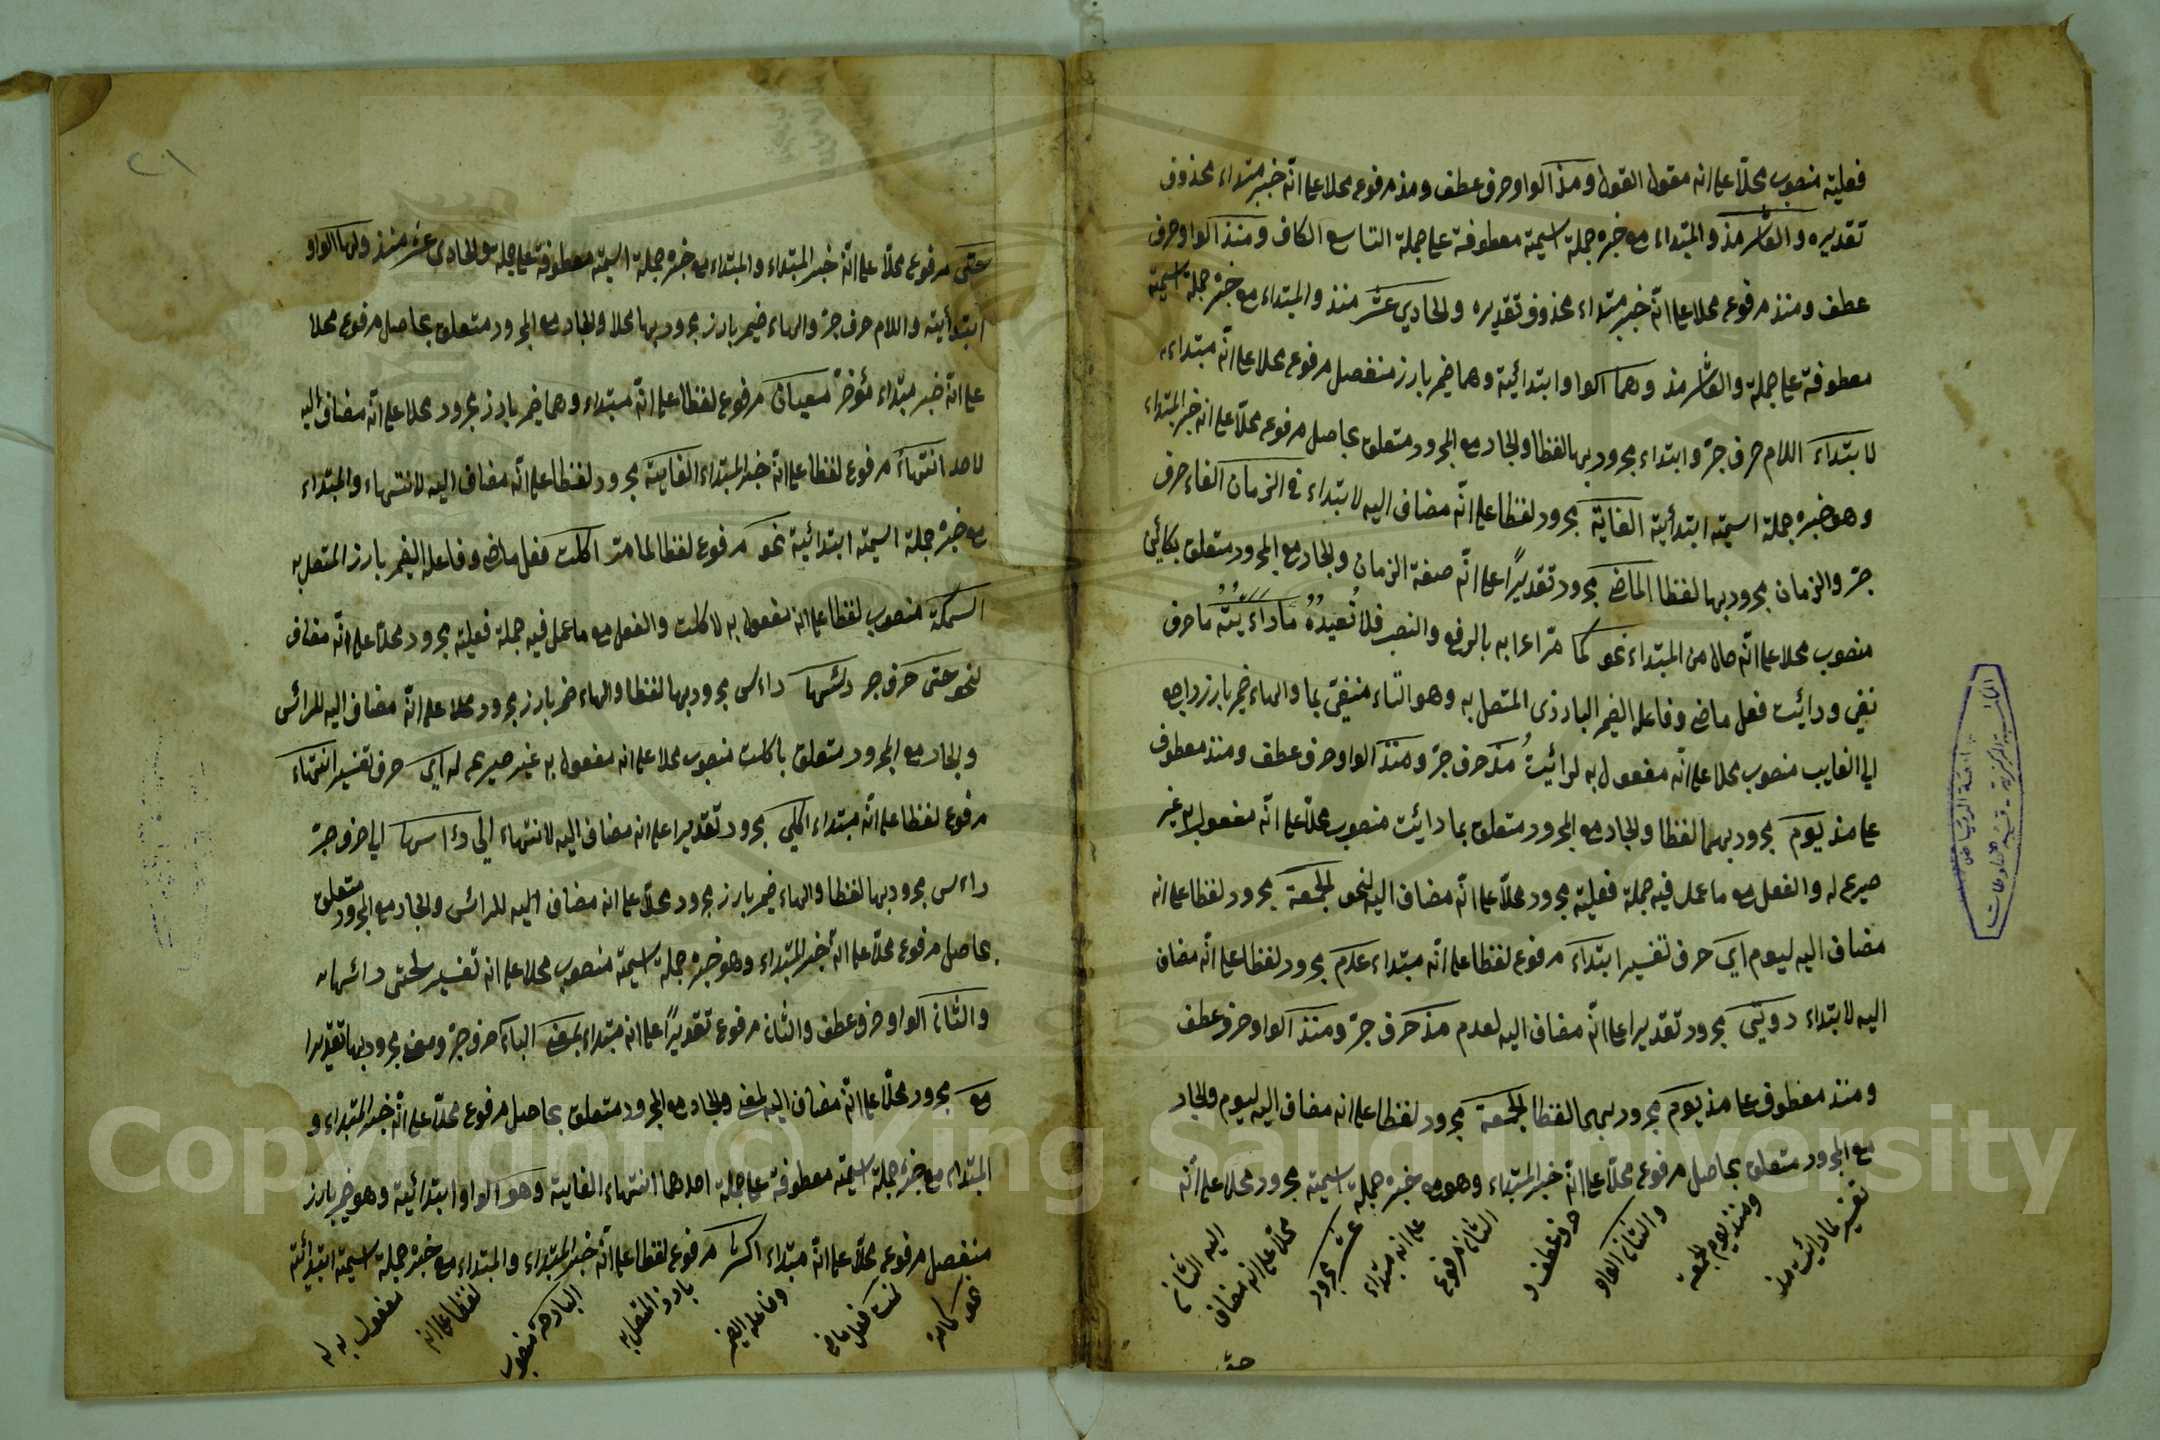 فعلية منصوب محلّا على انه مقول القول ومذ الواو حرف عطف ومذ مرفوع محلا على انّه خبر مبتداء محذوف
تقديره والعاشر مذ والمبتداء مع خبره جملة اسمية معطوفة على جملة التاسع الكاف ومنذ الواو حرف
عطف ومنذ مرفوع محلا على انّه خبر مبتداء محذوف تقديره والحادي عشر منذ والمبتداء مع خبره جملة اسمية
معطوفة على جملة والعاشر مذ وهما الواو ابتدائية وهما ضمير بارز منفصل مرفوع محلا على انّه مبتداء
لابتداء اللام حرف جرّ وابتداء مجرور بها لفظا والجار مع المجرور متعلق بحاصل مرفوع محلّا على انه خبر المبتداء
وهو خبره جملة اسمية ابتدأيية الغاية مجرور لفظا على انّه مضاف اليه لابتداء في الزمان الفاء حرف
جرّ والزمان مجرور بها لفظا الماضي مجرور تقديرًا على انّه صفة الزمان والجار مع المجرور متعلق بكائن
منصوب محلا على انّه حالا من المبتداء نحو كما مرّ اعرابه بالرفع والنصب فلا نُعيدُهُ مَا رَاءَيْتُهُ ما حرف
نفي ورائيت فعل ماض وفاعله الضمير البارز ذى المتصل به وهو التاء منيفىّ بما والهاء ضمير بارز راجع
الى الغايب منصوب محلا على انّه مفعول به لرائيتُ مذ حرف جرّ ومنذ الواو حرف عطف ومنذ معطوف
على مذ يوم مجرور بهما لفظا والجار مع المجرور متعلق بما رائيت منصوب محلّا على انّه مفعول به غير
صريح له والفعل مع ما عمل فيه جملة فعلية مجرور محلّا على انّه مضاف اليه لنحو الجمعة مجرور لفظا على انه
مضاف اليه ليوم اي حرف تفسير ابتداء مرفوع لفظا على انّه مبتداء عدم مجرور لفظا على انّه مضاف
اليه لابتداء رويتى مجرور تقديرا على انّه مضاف اليه لعدم مذ حرف جرّ ومنذ الواو حرف عطف
ومنذ معطوف على مذ يوم مجرور بهما لفظا الجمعة مجرور لفظا على انه مضاف اليه ليوم والجار
مع المجرور متعلق بحاصل مرفوع محلّا على انّه خبر المبتداء وهو مع خبره جملة اسمية مجرور محلا على انّه
تفسير لما رائيت مذ
ومنذ يوم الجمعة
والثانى الواو
حرف عطف و
الثانى مرفوع
على انه مبتداء
عشر مجرور
محلّا على انّه مضاف
اليه الثانى
حتى
٢١
حتى مرفوع محلّا على انّه خبر المبتداء والمبتداء مع خبره جملة اسمية معطوفة على جملة والحادى عشر منذ ولها الواو
ابتدأيية واللام حرف جرّ والهاء ضمير بارز مجرور بها محلا والجار مع المجرور متعلق بحاصل مرفوع محلا
على انّه خبر مبتداء مؤخرً معينان مرفوع لفظا على انّه مبتداء وهما ضمير بارز مجرور محلا على انّه مضاف اليه
لاحد انتهاء مرفوع لفظا على انّه خبر المبتداء الغايية مجرور لفظا على انّه مضاف اليه لانتهاء والمبتداء
مع خبره جملة اسمية ابتدائية نحو مرفوع لفظا لما مرّ اكلت فعل ماض وفاعله الضمير بارز المتصل به
السمكة منصوب لفظا على انه مفعول به لاكلت والفعل مع ما عمل فيه جملة فعلية مجرور محلّا على انّه مضاف
لنحو حتى حرف جر رئسها راءس مجرور بها لفظا والهاء ضمير بارز مجرور محلا على انّه مضاف اليه للرائس
والجار مع المجرور متعلق باكلت منصوب محلا على انه مفعول به غير صريح له اي حرف تفسير انتهاء
مرفوع لفظا على انّه مبتداء اكلي مجرور تقديرا على انه مضاف اليه لانتهاء الى رأسها الى حرف جرّ
راءس مجرور بها لفظا والهاء ضمير بارز مجرور محلّا على انه مضاف اليه للرائس والجار مع المجرور متعلق
بحاصل مرفوع محلّا على انّه خبر المبتداء وهو خبره جملة اسمية منصوب محلا على انه تفسير لحتى رائسها
والثانى الواو حرف عطف والثان مرفوع تقديرًا على انه مبتداء بمعنى الباء حرف جرّ ومعنى مجرور بها تقديرا
مع مجرور محلّا على انّه مضاف اليه لمعنى والجار مع المجرور متعلق بحاصل مرفوع محلّا على انّه خبر المبتداء و
المبتداء مع خبره جملة اسمية معطوفة على جملة احدهما انتهاء الغايية وهو الواو ابتدائية وهو ضمير بارز
منفصل مرفوع محلّا على انّه مبتداء اكثر مرفوع لفظا على انّه خبر المبتداء والمبتداء مع خبره جملة اسمية ابتدائية
نحو كما مرّ
نمت فعل ماض
وفاعله الضمير
بارز المتصل به
البارحة منصوب
لفظا على انه
مفعول به له
المكتبة المركزية - قسم المخطوطات
جامعة الرياض
Copyright © King Saud University